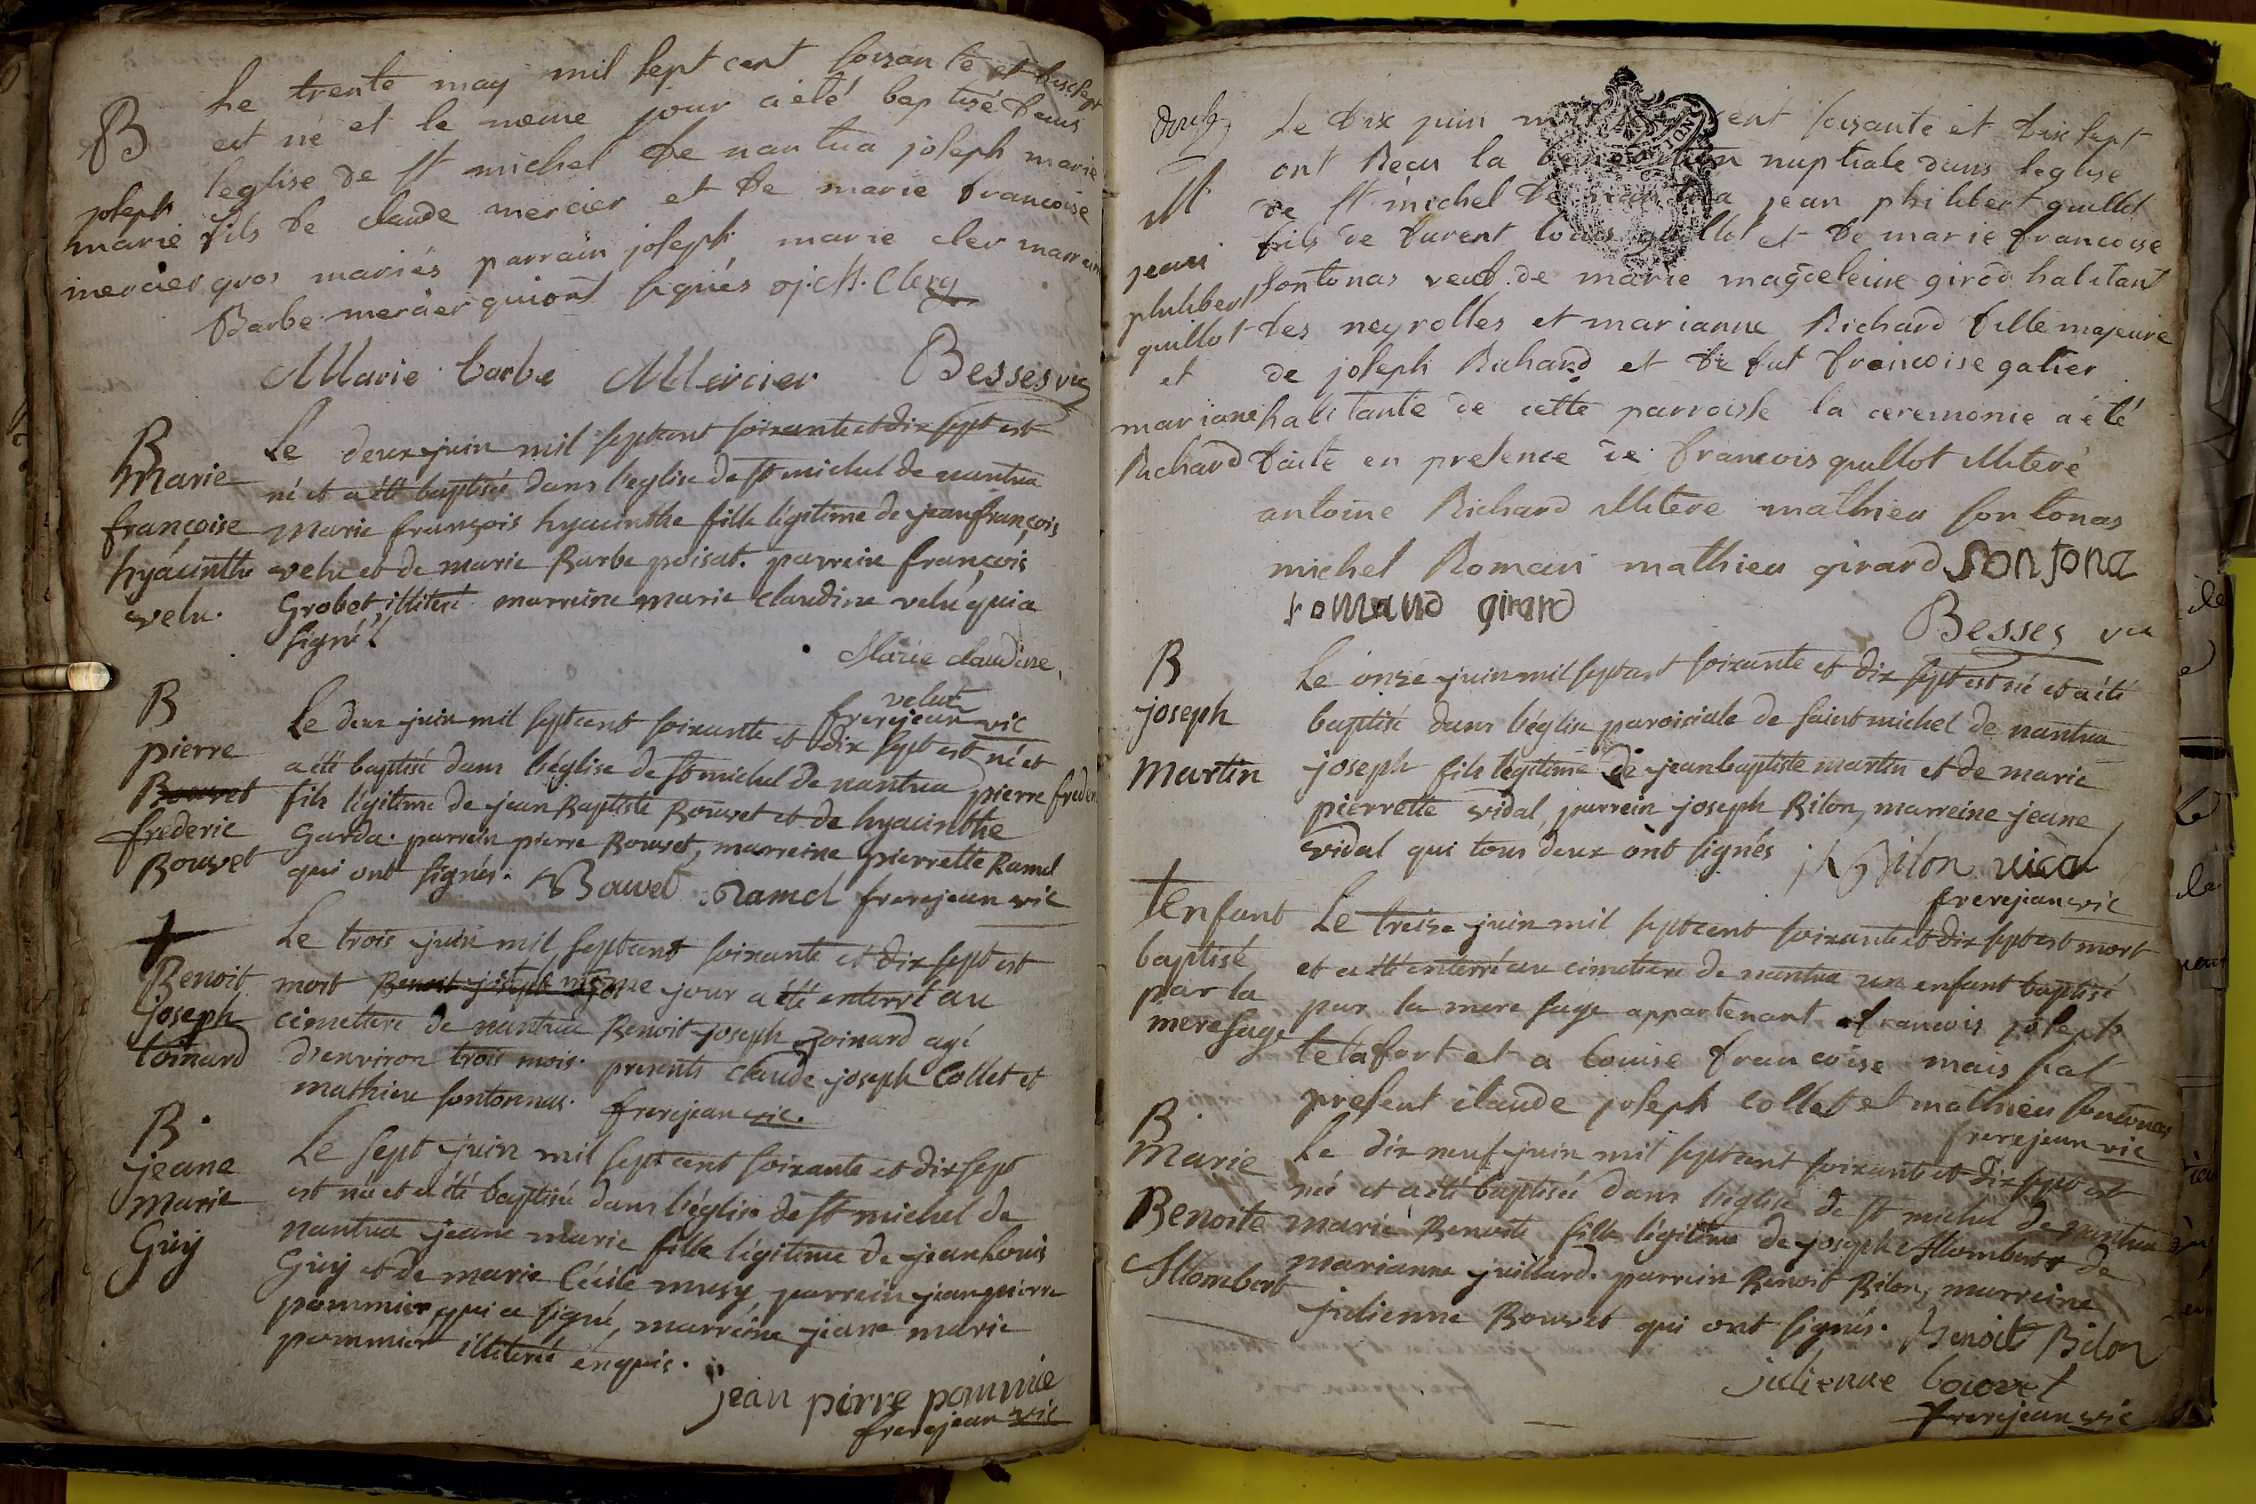 B
joseph
marie
mercier
Le trente may mil sept cent soixante et dix sept
est né et le meme jour a été baptisé dans
l'eglise de st michel de nantua joseph marie
fils de claude mercier et de marie francoise
gros mariés parrain joseph marie cler marreine
Barbe mercier qui ont signés j. M. Clerg
Marie barbe Mercier Besses vic
B
Marie
françoise
hyacinthe
velu.
Le deux juin mil septcent soixante et dix sept est
né et a été baptisée dans l'eglise de st michel de nantua
Marie françois hyacinthe fille légitime de jean françois
velu et de marie Barbe poisat. parrein françois
Grobet, illiteré marreine marie claudine velu qui a
signé.
Marie claudine
velut
frerejean vic
B
pierre
Bouvet
frederic
Bouvet
Le deux juin mil septcent soixante et dix sept est né et
a été baptisé dans l'église de st michel de nantua pierre freder
fils légitime de jean Baptiste Bouvet et de hyacinthe
Garda. parrein pierre Bouvet, marreine pierrette Ramel
qui ont signés. Bouvet Ramel frerejean vic
†
Benoit
joseph
toinard
Le trois juin mil septcent soixante et dix sept est
mort Benoit joseph meme jour a été enterré au
cimetiere de nantua Benoit joseph Toinard agé
d'environ trois mois. presents claude joseph Collet et
mathieu sontonnas. frerejean vic.
B.
jeane
Marie
Guy
Le sept juin mil septcent soixante et dix sept
est née et a été baptisée dans l'église de st michel de
nantua jeane marie fille légitime de jean Louis
Guy et de marie Cécile musy parrein jean pierre
pommier, qui a signé, marreine jeane marie
pommier illiterée enquis.
jean pirre pommie
frerejean vic
M
jean
philibert
guillot
et
mariane
Richard
Le dix juin cent soixante et dix sept
ont Recu la nuptiale dans leglise
de st michel de nantua jean philibert guillot
fils de Laurent louis guillot et de marie francoise
sontonas veuf de marie magdeleine girod habitant
des neyrolles et marianne Richard fille majeure
de joseph Richard et de fut francoise galier
habitante de cette parroisse la ceremonie a été
faite en presence de francois guillot illiteré
antoine Richard illitere mathieu sontonas
michel Roman mathieu girard sontona
romand girard
Besses vic
B
joseph
Martin
Le onze juin mil septcent soixante et dix sept est né et a été
baptisé dans l'église paroisiale de saint michel de nantua
joseph fils légitime de jean baptiste martin et de marie
pierrette vidal, parrein joseph Bilon, marreine jeane
vidal qui tous deux ont signés j Bilon vidal
frerejean vic
†Enfant
baptisé
par la
mere sage
Le treise juin mil septcent soixante et dix sept est mort
et a été enterré au cimetiere de nantua un enfant baptisé
par la mere sage appartenant a francois joseph
telafort et a louise francoise mais sal
present claude joseph collet et mathieu sontonas
frerejean vic
B.
Marie
Benoite
Hombert
Le dix neuf juin mil septcent soixante et dix sept est
née et a été baptisée dans l'église de st michel de nantua
marie Benoite fille légitime de joseph Hombert de
marianne juillard. parrein Benoit Bilon, marreine
julienne Bouvet qui ont signés. Benoit Bilon
julienne bouvet
frerejean vic